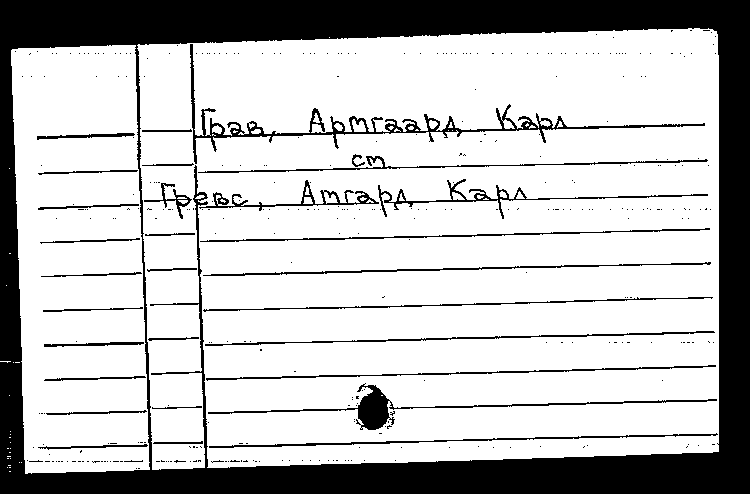 Грав, Армгаард Карл
см.
Гревс, Амгард Карл